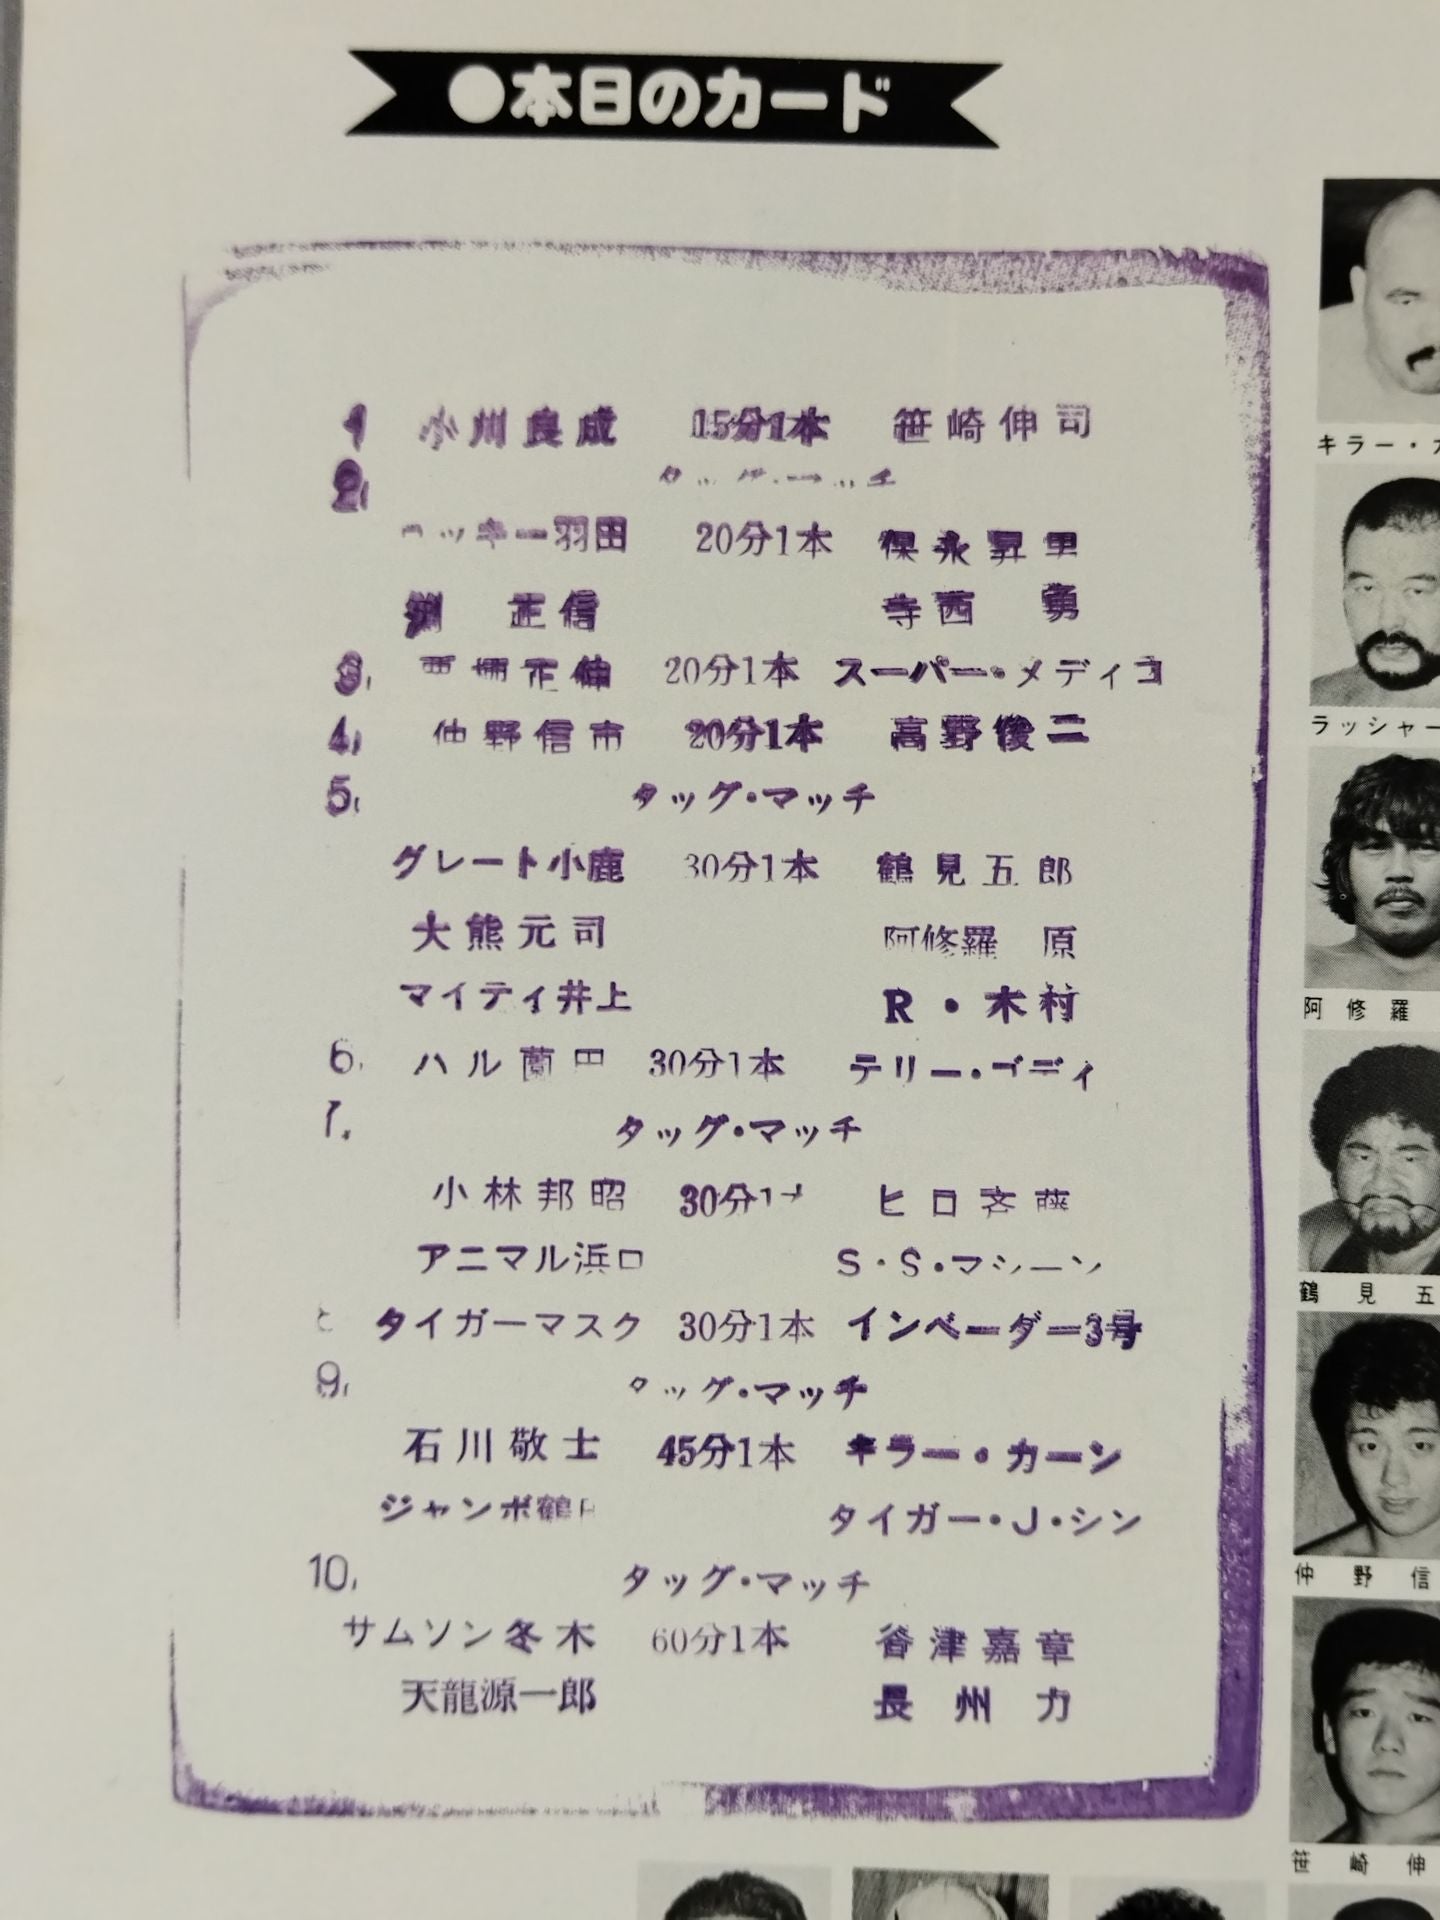 ●本日のカード
1 小川良成 15分1本 笹崎伸司
2, タッグ・マッチ
ロッキー羽田 20分1本 保永昇男
渕 正信 寺西 勇
3, 20分1本 スーパー・メディコ
4, 仲野信市 20分1本 高野俊二
5, タッグ・マッチ
グレート小鹿 30分1本 鶴見五郎
大熊元司 阿修羅 原
マイティ井上 R・木村
6, ハル薗田 30分1本 テリー・ゴディ
7, タッグ・マッチ
小林邦昭 30分1本 ヒロ斉藤
アニマル浜口 S・S・マシーン
タイガーマスク 30分1本 インベーダー3号
9, タッグ・マッチ
石川敬士 45分1本 キラー・カーン
ジャンボ鶴田 タイガー・J・シン
10, タッグ・マッチ
サムソン冬木 60分1本 谷津嘉章
天龍源一郎 長州 力
キラー・カ
ラッシャー
阿修羅
鶴見五
仲野信
笹崎伸